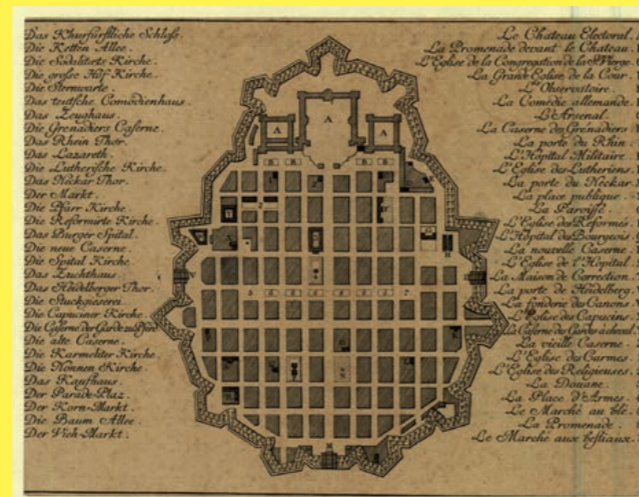 Das Churfürstliche Schloss.
Die Ketten Allee.
Die Sodalitæts Kirche.
Die grosse Hof Kirche.
Die Sternwarte.
Das teutsche Comödienhaus.
Das Zeughaus.
Die Grenadiers Caserne.
Das Rhein Thor.
Das Lazareth.
Die Lutherische Kirche.
Das Neckar Thor.
Der Markt.
Die Pfarr Kirche.
Die Reformirte Kirche.
Das Burger Spital.
Die neue Caserne.
Die Spital Kirche.
Das Zuchthaus.
Das Heidelberger Thor.
Die Stuckgieserei.
Die Capuciner Kirche.
Die Caserne der Garde zu Pferd
Die alte Caserne.
Die Karmeliter Kirche.
Die Nonnen Kirche.
Das Kaufhaus.
Der Parade-Plaz.
Der Korn-Markt.
Die Baum Allee.
Der Vieh-Markt.
Le Chateau Electoral.
La Promenade devant le Chateau.
L'Eglise de la Congregation de la S. Vierge.
La Grande Eglise de la Cour.
L'Observatoire.
La Comedie allemande.
L'Arsenal.
La Caserne des Grénadiers
La porte du Rhin.
L'Hôpital Militaire.
L'Eglise des Lutheriens.
La porte du Neckar.
La place publique.
La Paroisse.
L'Eglise des Reformés.
L'Hôpital des Bourgeois.
La nouvelle Caserne.
L'Eglise de l'Hôpital.
La Maison de Correction.
La porte de Heidelberg.
La fonderie des Canons.
L'Eglise des Capucins.
La Caserne des Gardes à cheval.
La vieille Caserne.
L'Eglise des Carmes.
L'Eglise des Religieuses.
La Douane.
La Place d'Armes.
Le Marché au blé.
La Promenade.
Le Marché aux bestiaux.
A
A
A